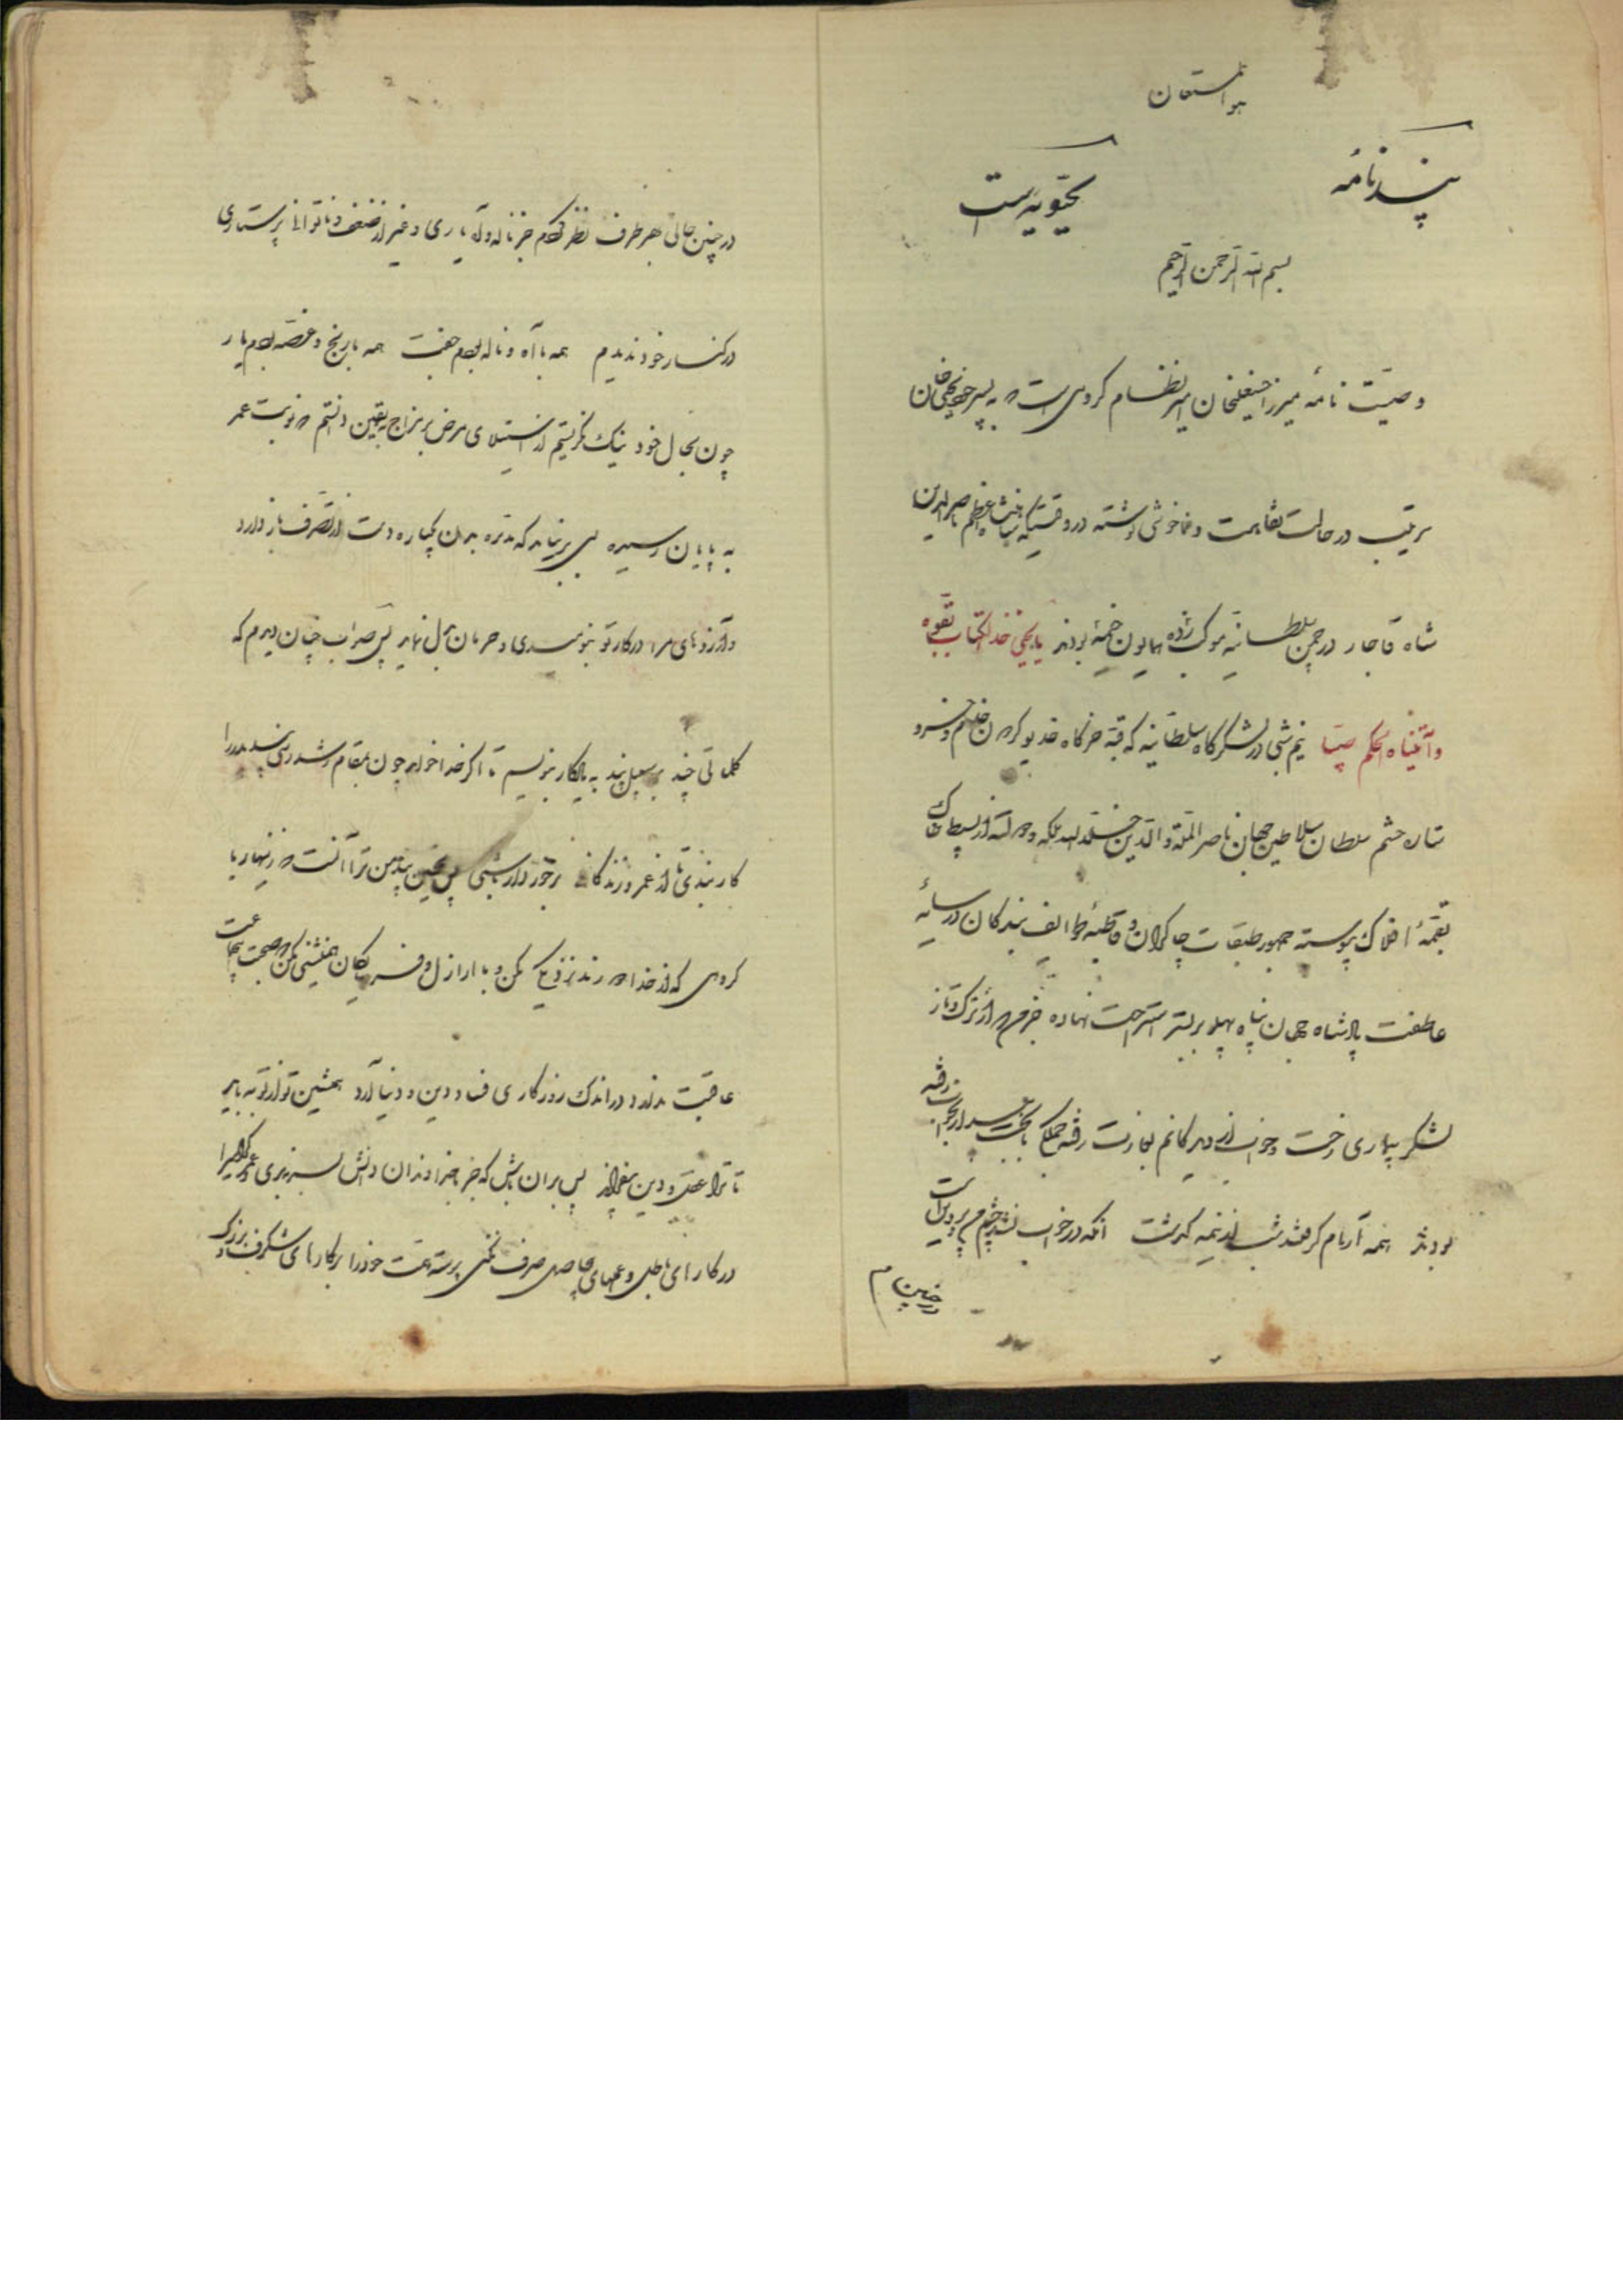 هو المستعان
پندنامهٔ یحیویه است
بسم الله الرحمن الرحیم
وصیت نامهٔ میرزا حسنعلیخان امیر نظام گروسی است که به پسر خود یحیی خان
بترتیب در حالت نقاهت و ناخوشی نوشته در وقتیکه شاهنشاه اعظم ناصرالدین
شاه قاجار در چمن سلطانیه موکب زده همایون خیمه بودند یا یحیی خذ الکتاب بقوة
و آتیناه الحکم صبیا نیم شبی در لشکرگاه سلطانیه که قبه خرگاه خدیو کرم خسرو
ستاره حشم سلطان سلاطین جهان ناصر الملة والدین خلد الله ملکه و دولته از بسیط خاک
بقمهٔ افلاک پیوسته جمهور طبقات چاکران و قاطبهٔ طوایف بندگان در سایهٔ
عاطفت پادشاه جهان پناه پهلو بر بستر استراحت نهاده جز من که از ترک و تاز
لشکر بیماری رخت و خواب از دیدگانم بغارت رفته جملگی با بخت بیدار بخواب رفته
بودند همه آرام گرفتند شب از نیمه گذشت آنکه در خواب نشد چشم من و پروین است
در چنین حالی بهر طرف نظر کردم جز ناله و آه یاری و غیر از ضعف و ناتوانی پرستاری
در کنار خود ندیدم همه با آه و ناله بودم جفت همه با رنج و غصه بودم یار
چون بحال خود نیک نگریستم از استیلای مرض بر مزاج بیقین دانستم که نوبت عمر
به پایان رسیده بسی بر نیاید که مدبره بدن یکباره دست از تصرف باز دارد
و آرزوهای مرا در کار تو بنومیدی و حرمان بدل نماید پس صواب چنان دیدم که
کلماتی چند بر سبیل پند به یادگار بنویسم تا اگر خدا خواهد چون بمقام رشد رسی پند پدر را
کار بندی تا از عمر و زندگانی برخوردار باشی پس نخستین پند من ترا آنست که زنهار با
گروهی که از خدا دورند نزدیکی مکن و با اراذل و فرومایگان همنشینی مکن که صحبت این جماعت
عاقبت ندارد در اندک روزگاری فساد دین و دنیا آرد همنشین تو از تو به باید
تا ترا عقل و دین بیفزاید پس بر آن باش که جز با خداوندان دانش بسر نبری و عمر گرانمایه را
در کارهای باطل و عملهای بیحاصل صرف نکنی پیوسته همت خود را بر کارهای شگرف و بزرگ